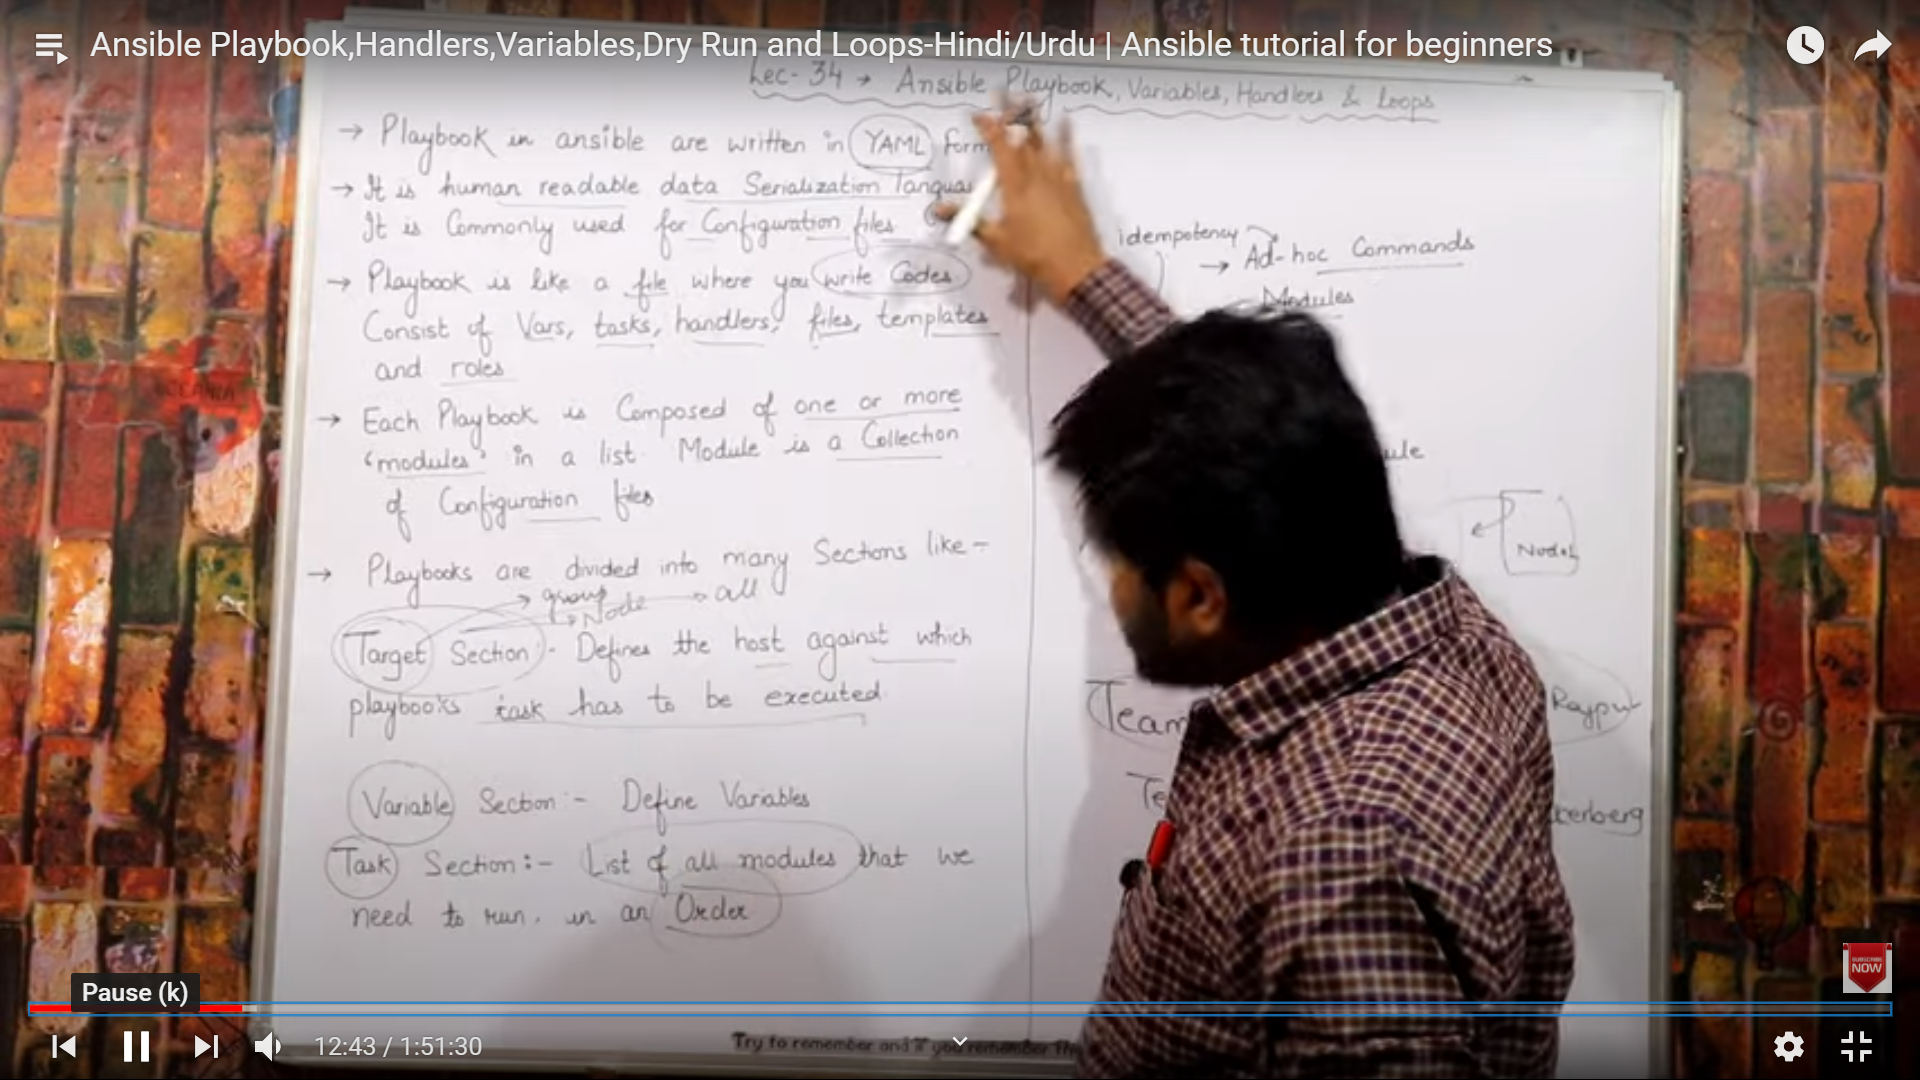 Ansible Playbook,Handlers,Variables,Dry Run and Loops-Hindi/Urdu | Ansible tutorial for beginners
Lec- 34 → Ansible Playbook, Variables, Handlers & Loops
→ Playbook in ansible are written in YAML form
→ It is human readable data Serialization langua
It is Commonly used for Configuration files
→ Playbook is like a file where you write Codes
Consist of Vars, tasks, handlers, files, templates
and roles
→ Each Playbook is Composed of one or more
'modules' in a list. Module is a Collection
of Configuration files
→ Playbooks are divided into many Sections like -
→ group → all
→ Node
Target Section :- Defines the host against which
playbooks task has to be executed
Variable Section :- Define Variables
Task Section :- List of all modules that we
need to run, in an Order
idempotency
→ Ad-hoc Commands
Modules
ule
Nodes
Team
Rajput
Te
terberg
SUBSCRIBE
NOW
Pause (k)
12:43 / 1:51:30
Try to remember and if you remember th